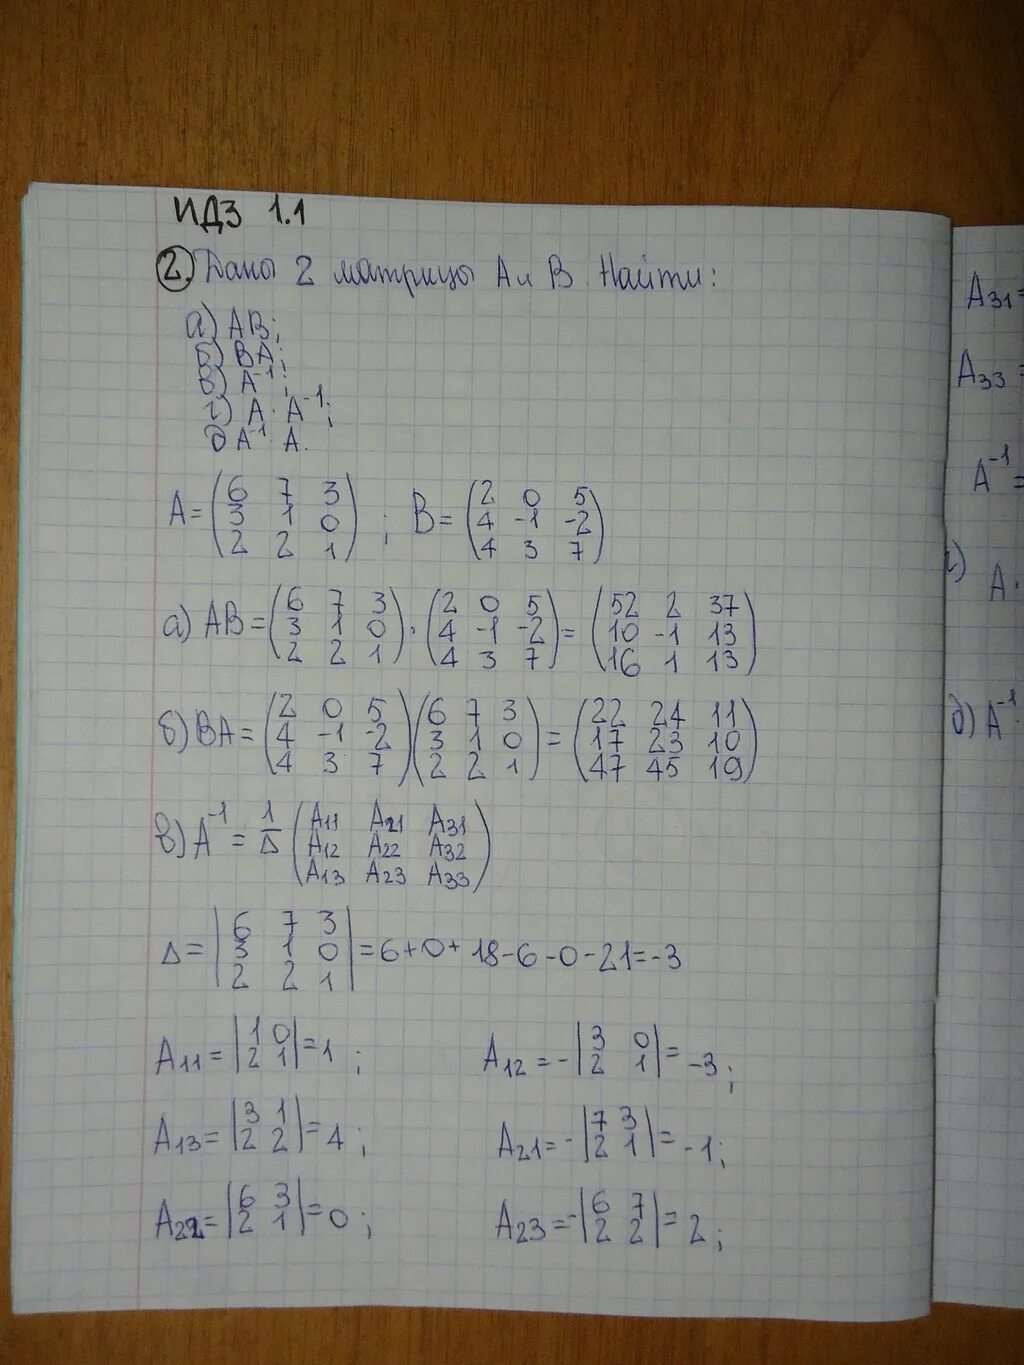 ИДЗ 1.1
2. Даны 2 матрицы А и В. Найти:
а) AB;
б) BA;
в) A⁻¹;
г) A · A⁻¹;
д) A⁻¹ A.
A = (6 7 3
3 1 0
2 2 1) ; B = (2 0 5
4 -1 -2
4 3 7)
а) AB = (6 7 3
3 1 0
2 2 1) · (2 0 5
4 -1 -2
4 3 7) = (52 2 37
10 -1 13
16 1 13)
б) BA = (2 0 5
4 -1 -2
4 3 7) (6 7 3
3 1 0
2 2 1) = (22 24 11
17 23 10
47 45 19)
в) A⁻¹ = 1/Δ (A11 A21 A31
A12 A22 A32
A13 A23 A33)
Δ = |6 7 3
3 1 0
2 2 1| = 6+0+18-6-0-21=-3
A11 = |1 0
2 1| = 1 ; A12 = -|3 0
2 1| = -3;
A13 = |3 1
2 2| = 4 ; A21 = -|7 3
2 1| = -1;
A22 = |6 3
2 1| = 0 ; A23 = -|6 7
2 2| = 2 ;
A31=
A33 =
A⁻¹ =
г) A ·
д) A⁻¹